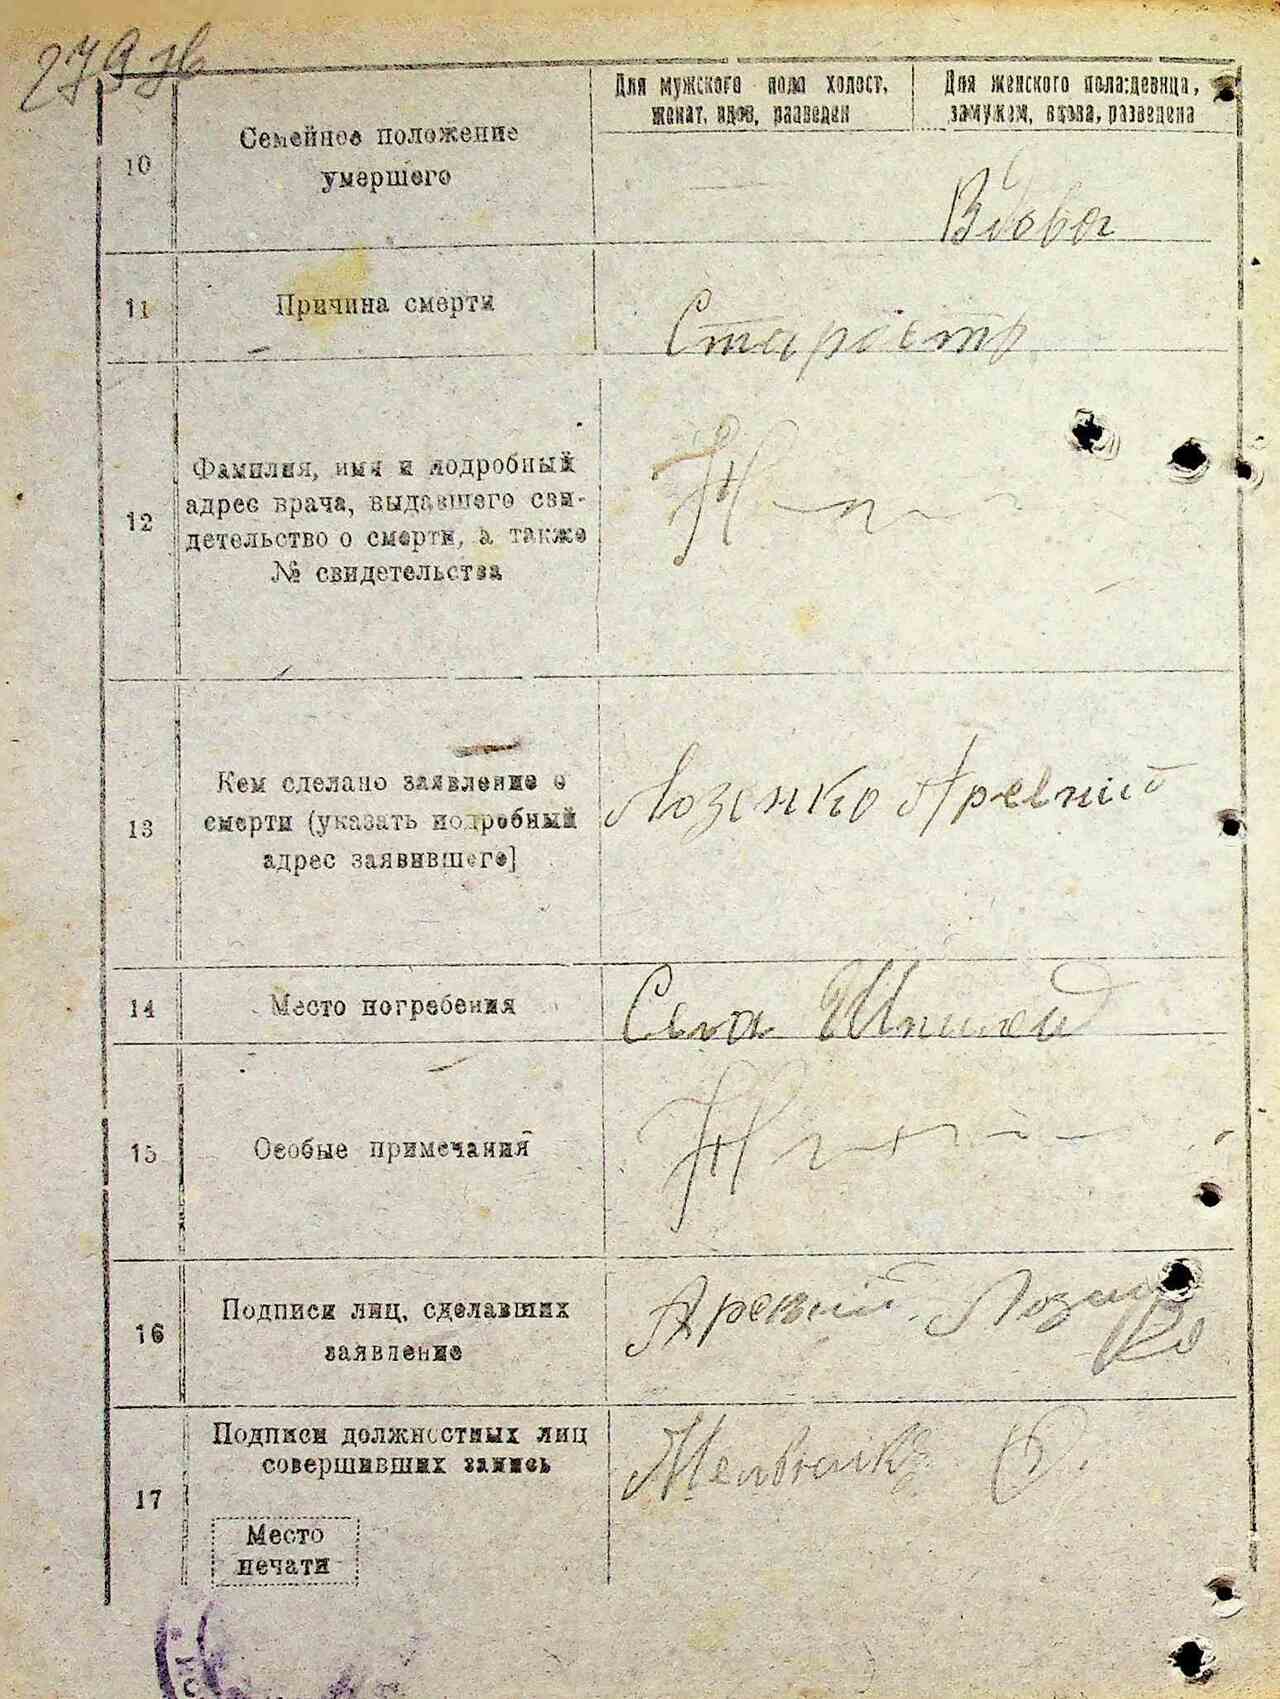 279 зв
Для мужского пола холост,
женат, вдов, разведен
Для женского пола:девица,
замужем, вдова, разведена
10
Семейное положение
умершего
—
Вдова
11
Причина смерти
Старость
12
Фамилия, имя и подробный
адрес врача, выдавшего сви-
детельство о смерти, а также
№ свидетельства
13
Кем сделано заявление о
смерти (указать подробный
адрес заявившего]
Лозенко
14
Место погребения
Села
15
Особые примечания
16
Подписи лиц, сделавших
заявление
17
Подписи должностных лиц
совершивших запись
Место
печати